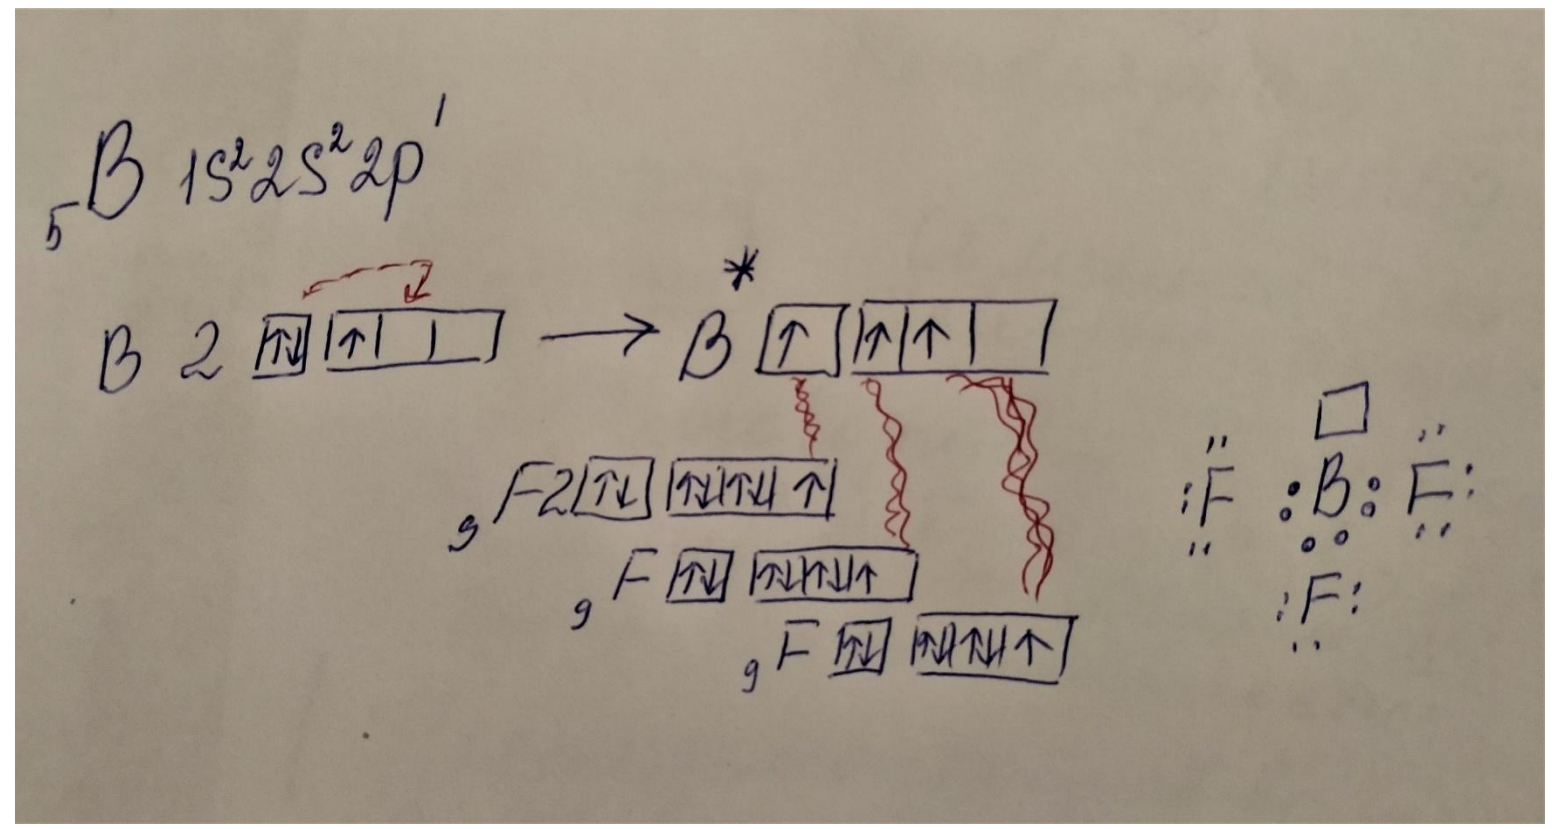 ₅B 1S²2S²2p¹
B 2 ↑↓ ↑ → B* ↑ ↑ ↑
₉F2 ↑↓ ↑↓ ↑↓ ↑
₉F ↑↓ ↑↓ ↑↓ ↑
₉F ↑↓ ↑↓ ↑↓ ↑
□
:F :B: F:
:F: